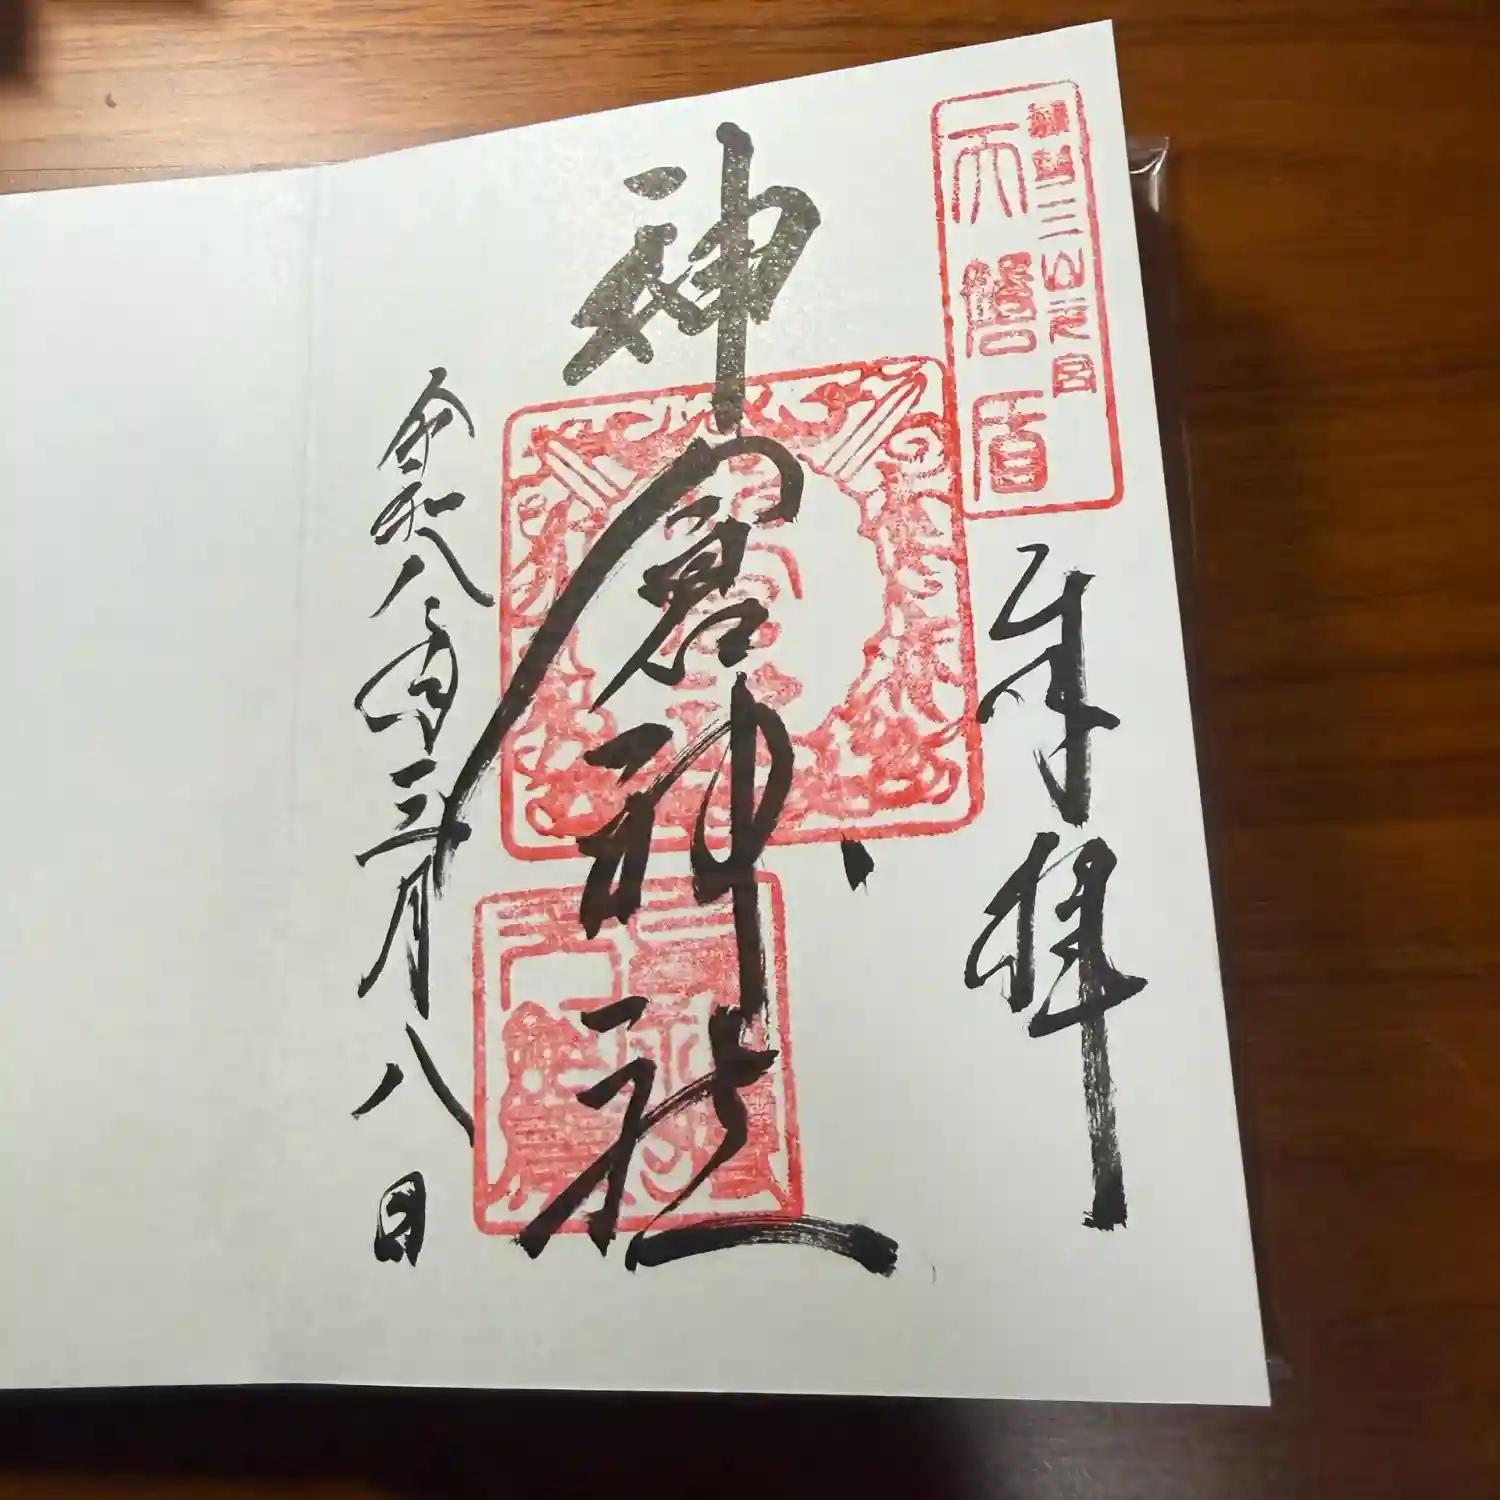 熊野三山元宮
天磐盾
奉拝
神倉神社
令和八年三月八日